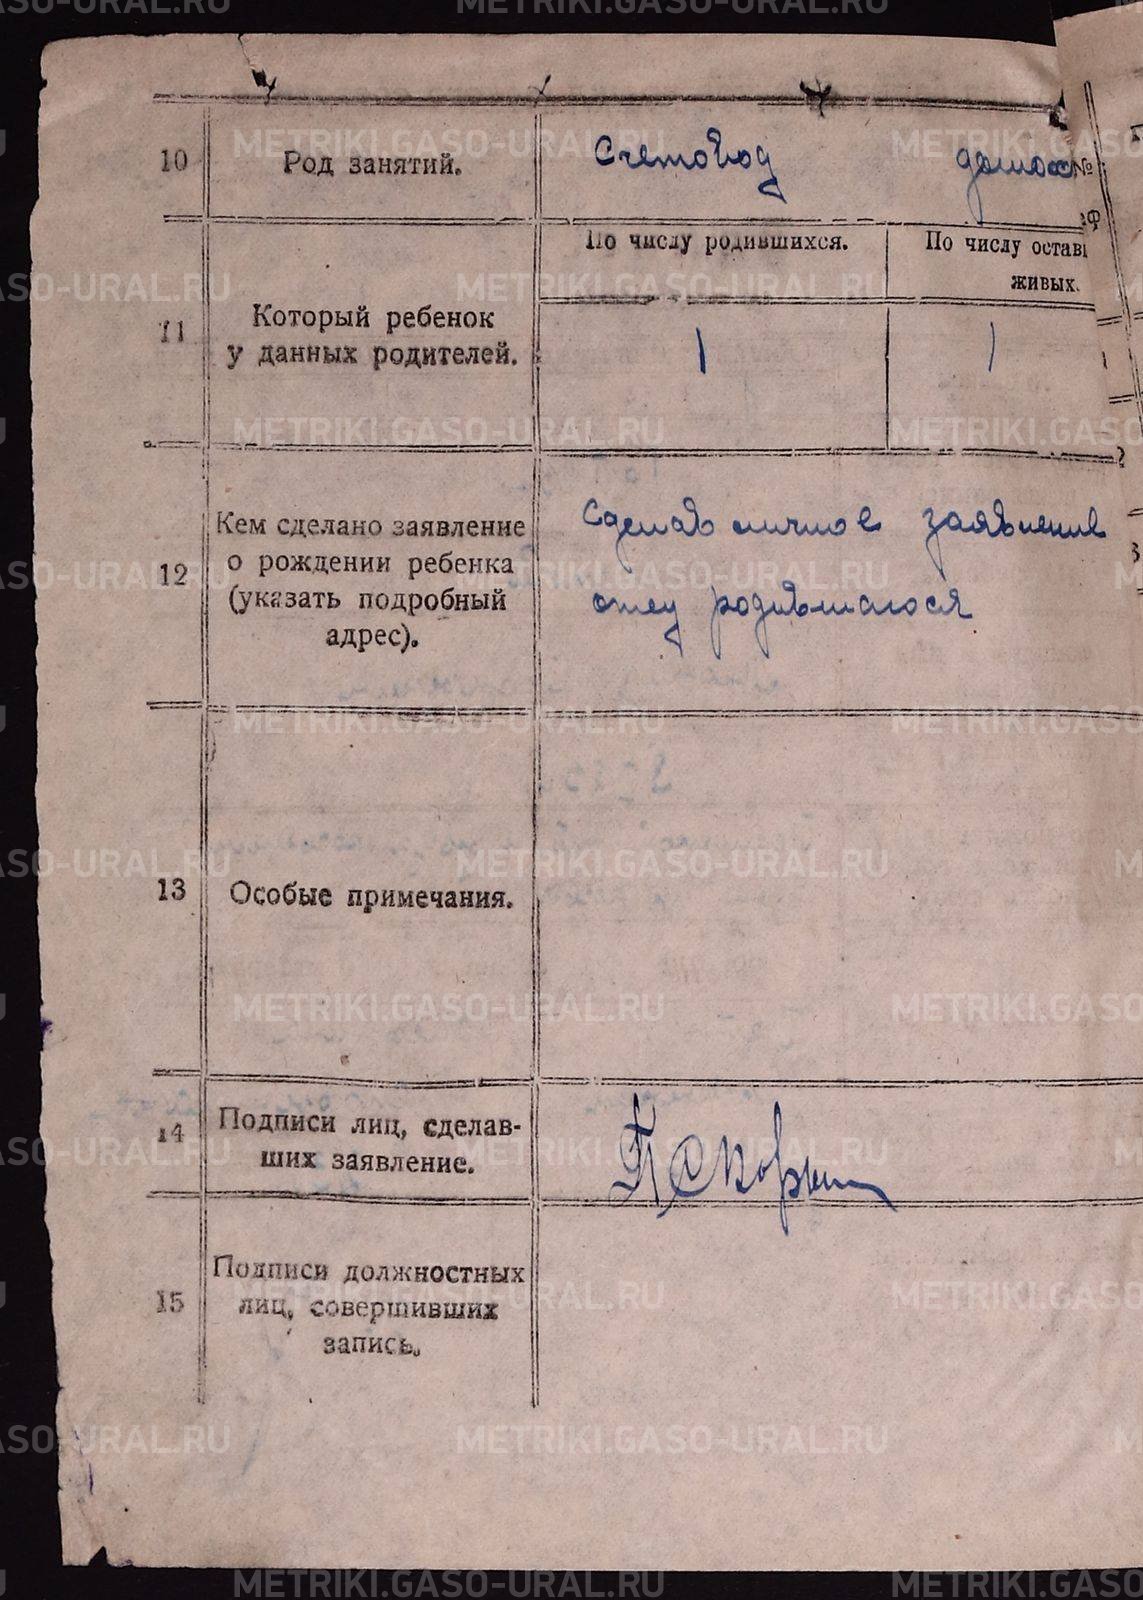 10 Род занятий. Счетовод домохо
По числу родившихся. По числу остав
живых.
11 Который ребенок
у данных родителей. 1 1
12 Кем сделано заявление
о рождении ребенка
(указать подробный
адрес).
Сделав личное заявление
отец родившагося
13 Особые примечания.
14 Подписи лиц, сделав-
ших заявление.
15 Подписи должностных
лиц, совершивших
запись.
METRIKI.GASO-URAL.RU